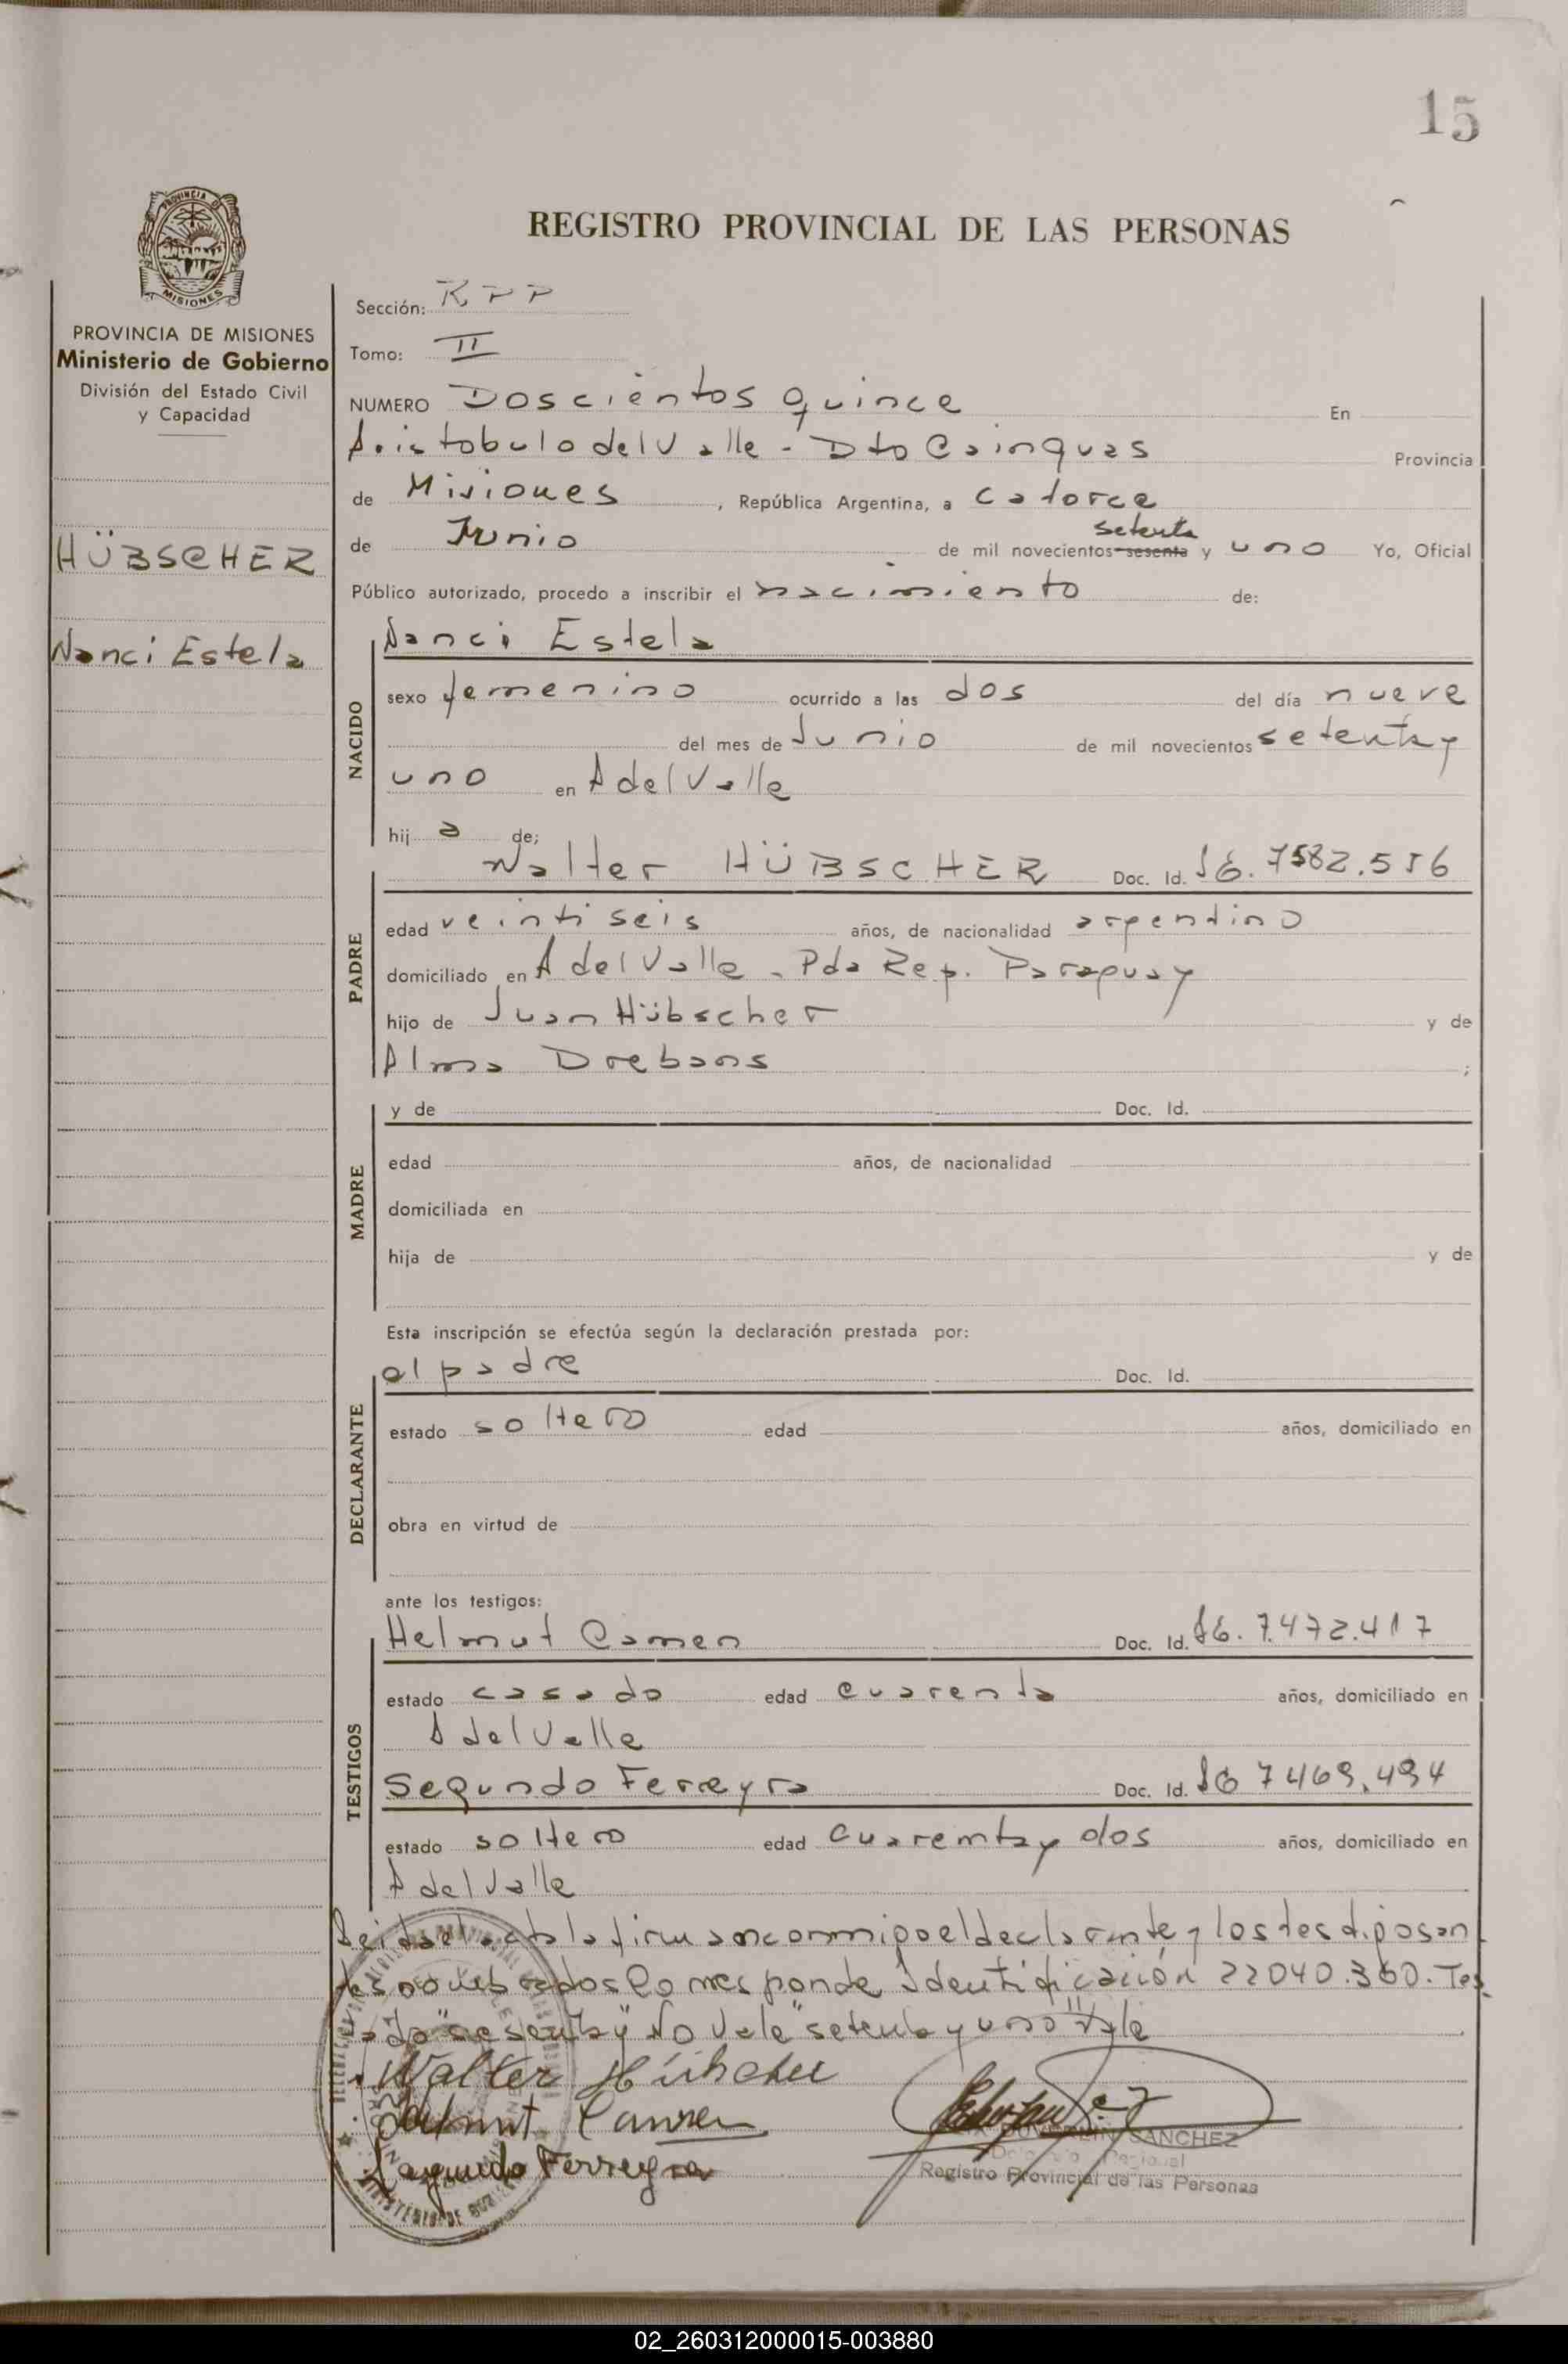 15
PROVINCIA DE
MISIONES
REGISTRO PROVINCIAL DE LAS PERSONAS
PROVINCIA DE MISIONES
Ministerio de Gobierno
División del Estado Civil
y Capacidad
HÜBSCHER
Nanci Estela
Sección: RPP
Tomo: II
NUMERO Doscientos quince En
Aristobulo del Valle - Dto Cainguas Provincia
de Misiones, República Argentina, a catorce
setenta
de Junio de mil novecientos sesenta y uno Yo, Oficial
Público autorizado, procedo a inscribir el nacimiento de:
NACIDO
Nanci Estela
sexo femenino ocurrido a las dos del día nueve
del mes de Junio de mil novecientos setenta y
uno en A del Valle
hij a de;
PADRE
Walter HÜBSCHER Doc. Id. 7582.516
edad veintiseis años, de nacionalidad argentino
domiciliado en A del Valle - Pda Rep. Paraguay
hijo de Juan Hübscher y de
Alma Drebans ;
MADRE
y de Doc. Id.
edad años, de nacionalidad
domiciliada en
hija de y de
Esta inscripción se efectúa según la declaración prestada por:
DECLARANTE
el padre Doc. Id.
estado soltero edad años, domiciliado en
obra en virtud de
ante los testigos:
TESTIGOS
Helmut Camen Doc. Id. 7.472.417
estado casado edad cuarenta años, domiciliado en
A del Valle
Segundo Ferreyra Doc. Id. 7469.494
estado soltero edad cuarenta y dos años, domiciliado en
A del Valle
Leida el acta la firman conmigo el declarante y los testigos an
tes nombrados Corresponde Identificación 22040.360. Tes
tado "sesenta y" No Vale "setenta y uno" Vale
Walter Hübscher
Helmut Camen
Segundo Ferreyra
SANCHEZ
Registro Provincial de las Personas
02_260312000015-003880